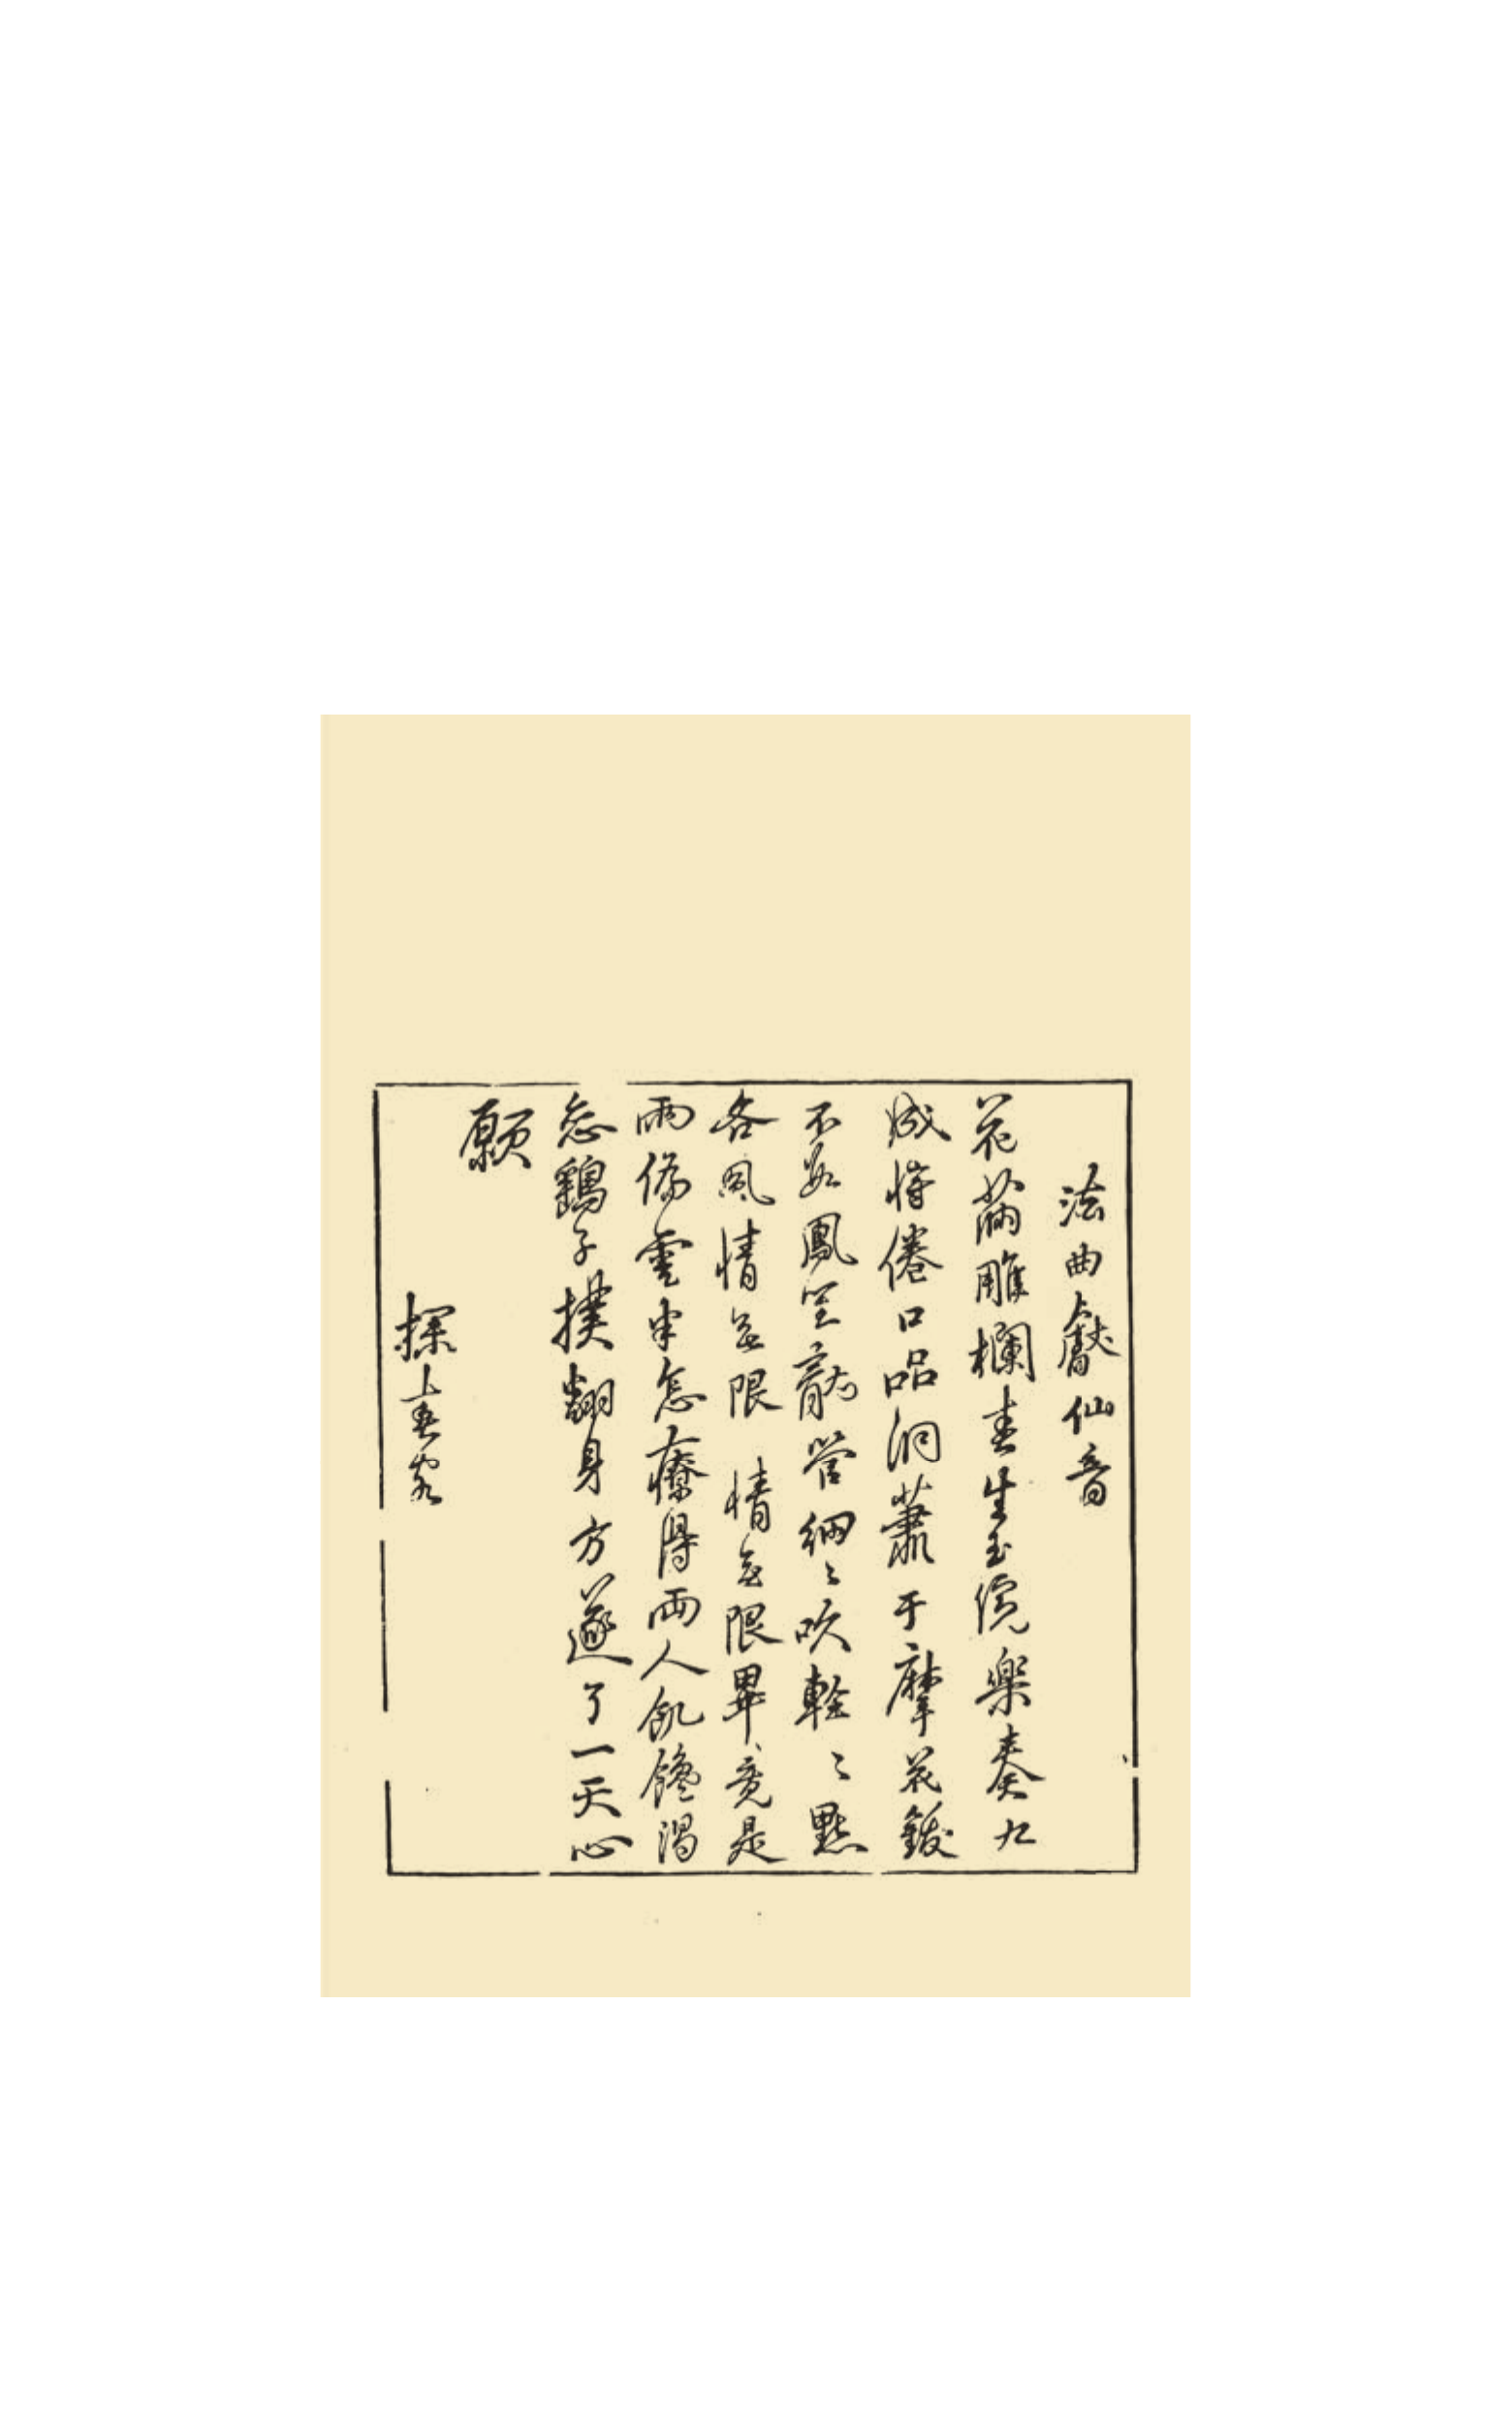 法曲獻仙音
花滿雕欄春生玉院樂奏九
成將倦口品洞蕭手摩花鈸
不如鳳笙龍管細〻吹輕〻點
各風情無限情無限畢竟是
兩條雲半怎療得兩人飢饞渴
怎鷂子撲翻身方遂了一天心
願
探春客